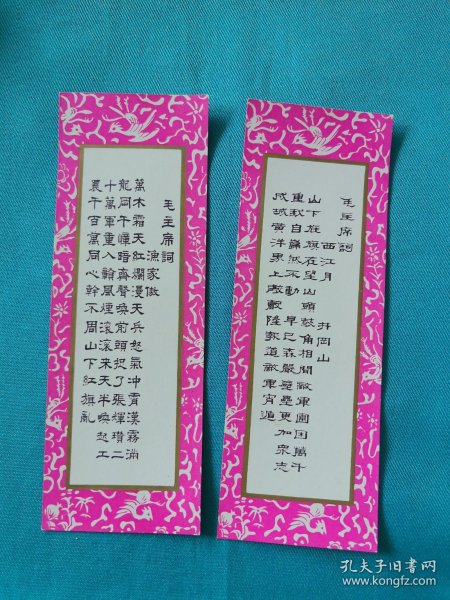 毛主席詞
漁家傲
萬木霜天紅爛漫天兵怒氣冲霄漢霧滿
龍岡千嶂暗齊聲喚前頭捉了張輝瓚二
十萬軍重入贛風煙滾滾来天半喚起工
農千百萬同心幹不周山下紅旗亂
毛主席詞
西江月 井岡山
山下旌旗在望山頭鼓角相聞敵軍圍困萬千
重我自巋然不動 早已森嚴壁壘更加衆志
成城黄洋界上礮聲隆報道敵軍宵遁
孔夫子旧书网
www.kongfz.com